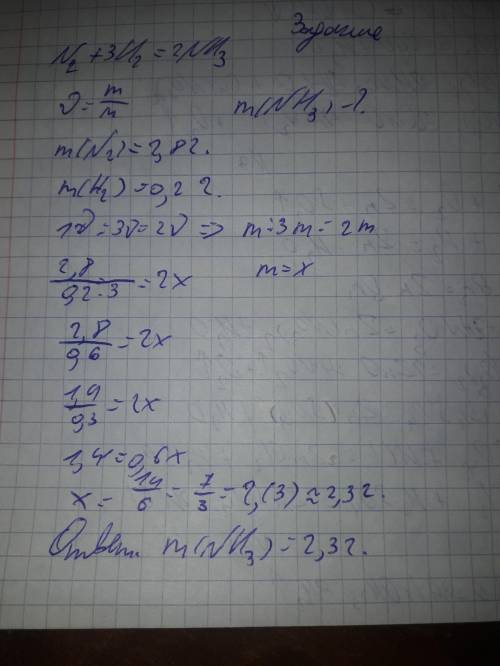 Задание
N₂ + 3H₂ = 2NH₃
ν = m/M m(NH₃) - ?
m(N₂) = 2,8 г.
m(H₂) = 0,2 г.
1ν = 3ν = 2ν => m = 3m = 2m
2,8/0,2·3 = 2x m = x
2,8/0,6 = 2x
1,4/0,3 = 2x
1,4 = 0,6x
x = 14/6 = 7/3 = 2,(3) ≈ 2,3 г.
Ответ: m(NH₃) = 2,3 г.